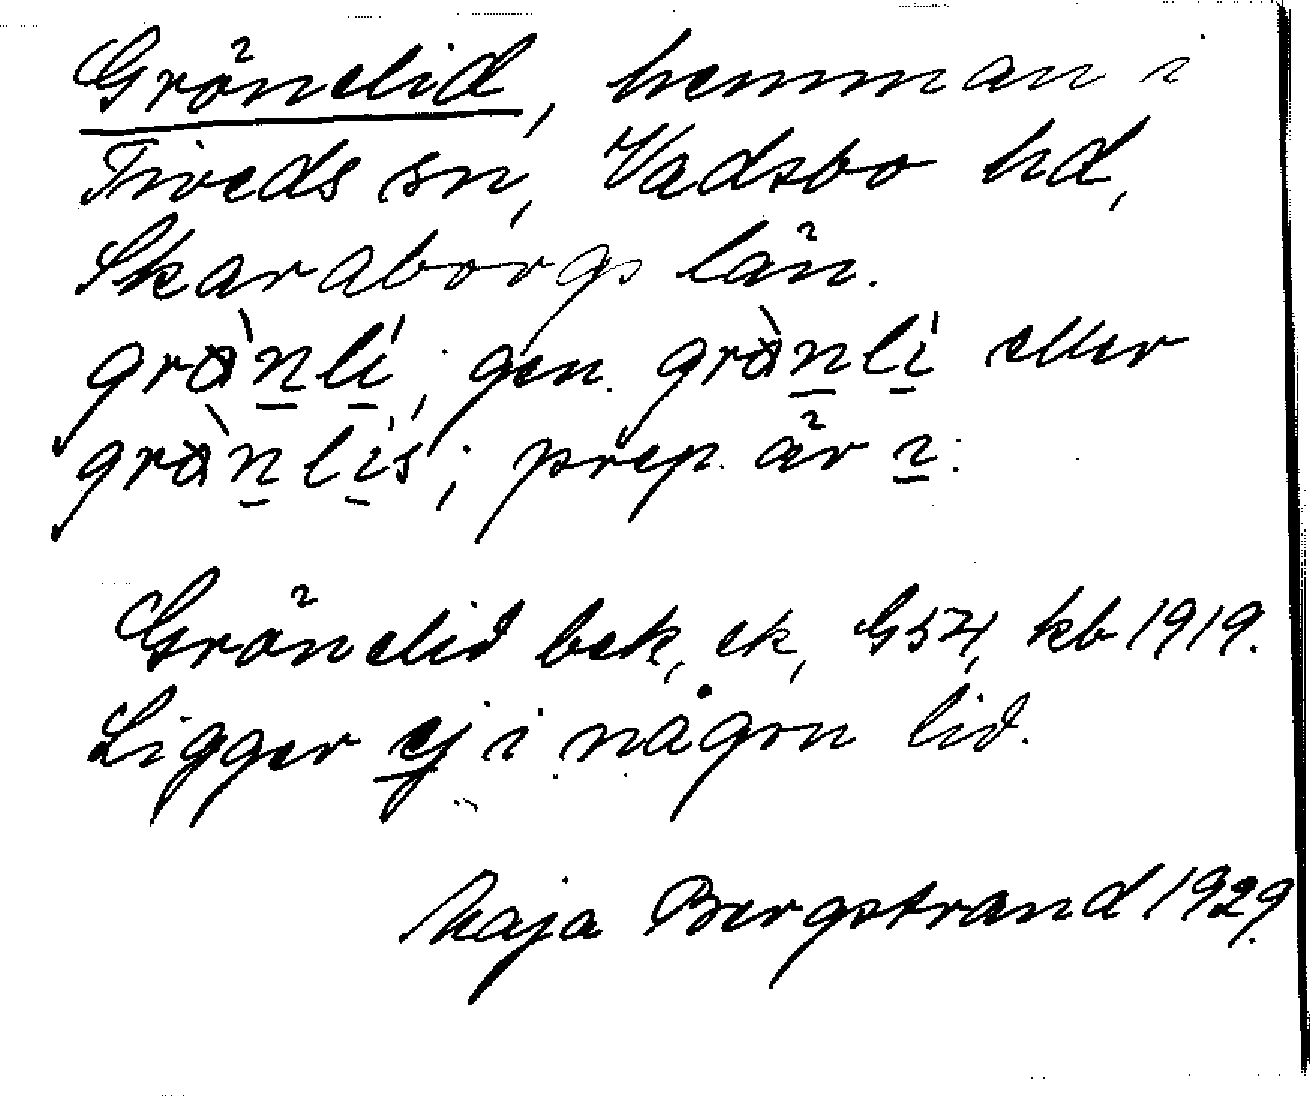 Grönelid, hemman i
Tiveds sn, Vadsbo hd,
Skaraborgs län.
grö̀nli, gen. grö̀nli eller
grö̀nlis; prep. är i.
Grönelid bek, ek, G54, kb 1919.
Ligger ej i någon lid.
Maja Bergstrand 1929.